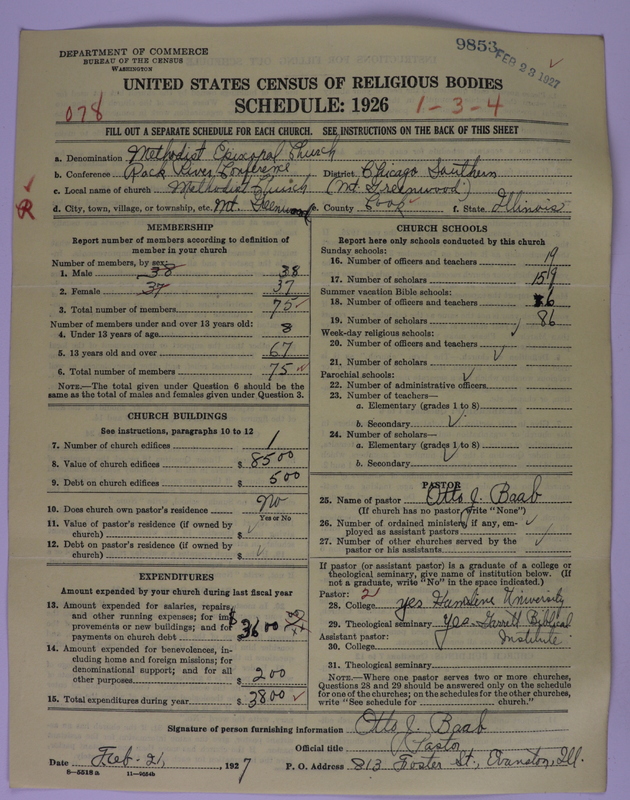 DEPARTMENT OF COMMERCE
BUREAU OF THE CENSUS
WASHINGTON
9853
FEB 23 1927
UNITED STATES CENSUS OF RELIGIOUS BODIES
SCHEDULE: 1926
078
1-3-4
FILL OUT A SEPARATE SCHEDULE FOR EACH CHURCH. SEE INSTRUCTIONS ON THE BACK OF THIS SHEET
a. Denomination Methodist Episcopal Church
b. Conference Rock River Conference District Chicago Southern
c. Local name of church Methodist Church (Mt. Greenwood)
R
d. City, town, village, or township, etc. Mt. Greenwood e. County Cook f. State Illinois
MEMBERSHIP
Report number of members according to definition of
member in your church
Number of members, by sex:
1. Male 38 38
2. Female 37 37
3. Total number of members 75
Number of members under and over 13 years old:
4. Under 13 years of age 8
5. 13 years old and over 67
6. Total number of members 75
NOTE.—The total given under Question 6 should be the
same as the total of males and females given under Question 3.
CHURCH BUILDINGS
See instructions, paragraphs 10 to 12
7. Number of church edifices 1
8. Value of church edifices $ 8500
9. Debt on church edifices $ 500
10. Does church own pastor's residence No
Yes or No
11. Value of pastor's residence (if owned by
church) $
12. Debt on pastor's residence (if owned by
church) $
EXPENDITURES
Amount expended by your church during last fiscal year
13. Amount expended for salaries, repairs,
and other running expenses; for im-
provements or new buildings; and for
payments on church debt $ 3600
14. Amount expended for benevolences, in-
cluding home and foreign missions; for
denominational support; and for all
other purposes $ 200
15. Total expenditures during year $ 3800
CHURCH SCHOOLS
Report here only schools conducted by this church
Sunday schools:
16. Number of officers and teachers 19
17. Number of scholars 159
Summer vacation Bible schools:
18. Number of officers and teachers 6
19. Number of scholars 86
Week-day religious schools:
20. Number of officers and teachers
21. Number of scholars
Parochial schools:
22. Number of administrative officers
23. Number of teachers—
a. Elementary (grades 1 to 8)
b. Secondary
24. Number of scholars—
a. Elementary (grades 1 to 8)
b. Secondary
PASTOR
25. Name of pastor Otto J. Baab
(If church has no pastor, write "None")
26. Number of ordained ministers, if any, em-
ployed as assistant pastors
27. Number of other churches served by the
pastor or his assistants
If pastor (or assistant pastor) is a graduate of a college or
theological seminary, give name of institution below. (If
not a graduate, write "No" in the space indicated.)
Pastor: 21
28. College yes Hamline University
29. Theological seminary yes Garrett Biblical
Assistant pastor: Institute
30. College
31. Theological seminary
NOTE.—Where one pastor serves two or more churches,
Questions 28 and 29 should be answered only on the schedule
for one of the churches; on the schedules for the other churches,
write "See schedule for church."
Signature of person furnishing information Otto J. Baab
Official title Pastor
Date Feb. 21, 1927 P. O. Address 813 Foster St., Evanston, Ill.
8—5518 a 11—9264b